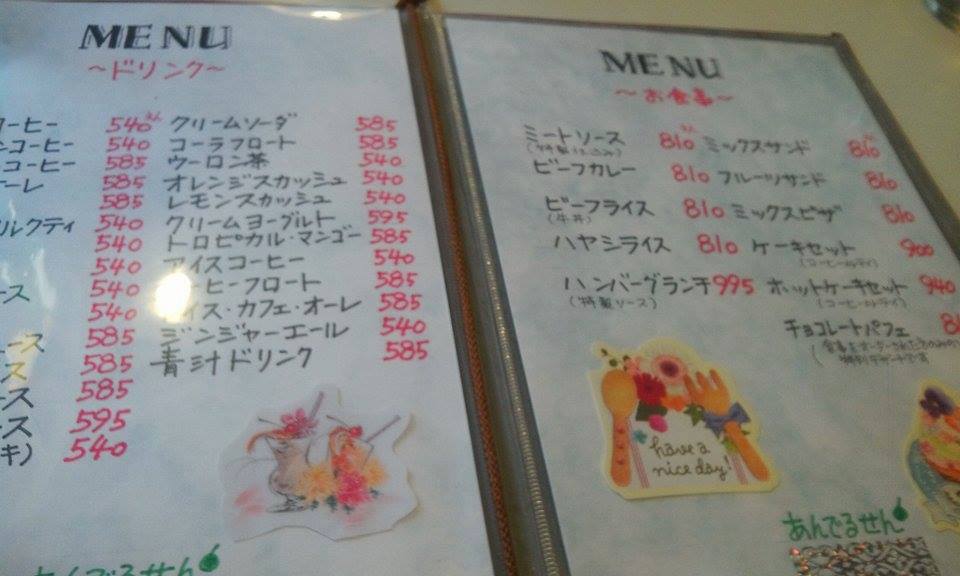 MENU
~ドリンク~
コーヒー 540
コーヒー 540
コーヒー 585
585
585
ルクティ 540
540
540
ース 540
540
ース 585
ス 585
ース 585
ース 595
キ) 540
クリームソーダ 585
コーラフロート 585
ウーロン茶 540
オレンジスカッシュ 540
レモンスカッシュ 540
クリームヨーグルト 595
トロピカル・マンゴー 585
アイスコーヒー 540
ーヒーフロート 585
イス・カフェ・オーレ 585
ジンジャーエール 540
青汁ドリンク 585
あんでるせん
MENU
~お食事~
ミートソース 810
(特製仕込み)
ビーフカレー 810
ビーフライス 810
(牛丼)
ハヤシライス 810
ハンバーグランチ 995
(特製ソース)
ミックスサンド 810
フルーツサンド 810
ミックスピザ 810
ケーキセット 900
(コーヒーorティ)
ホットケーキセット 940
(コーヒーorティ)
チョコレートパフェ
have a
nice day!
あんでるせん